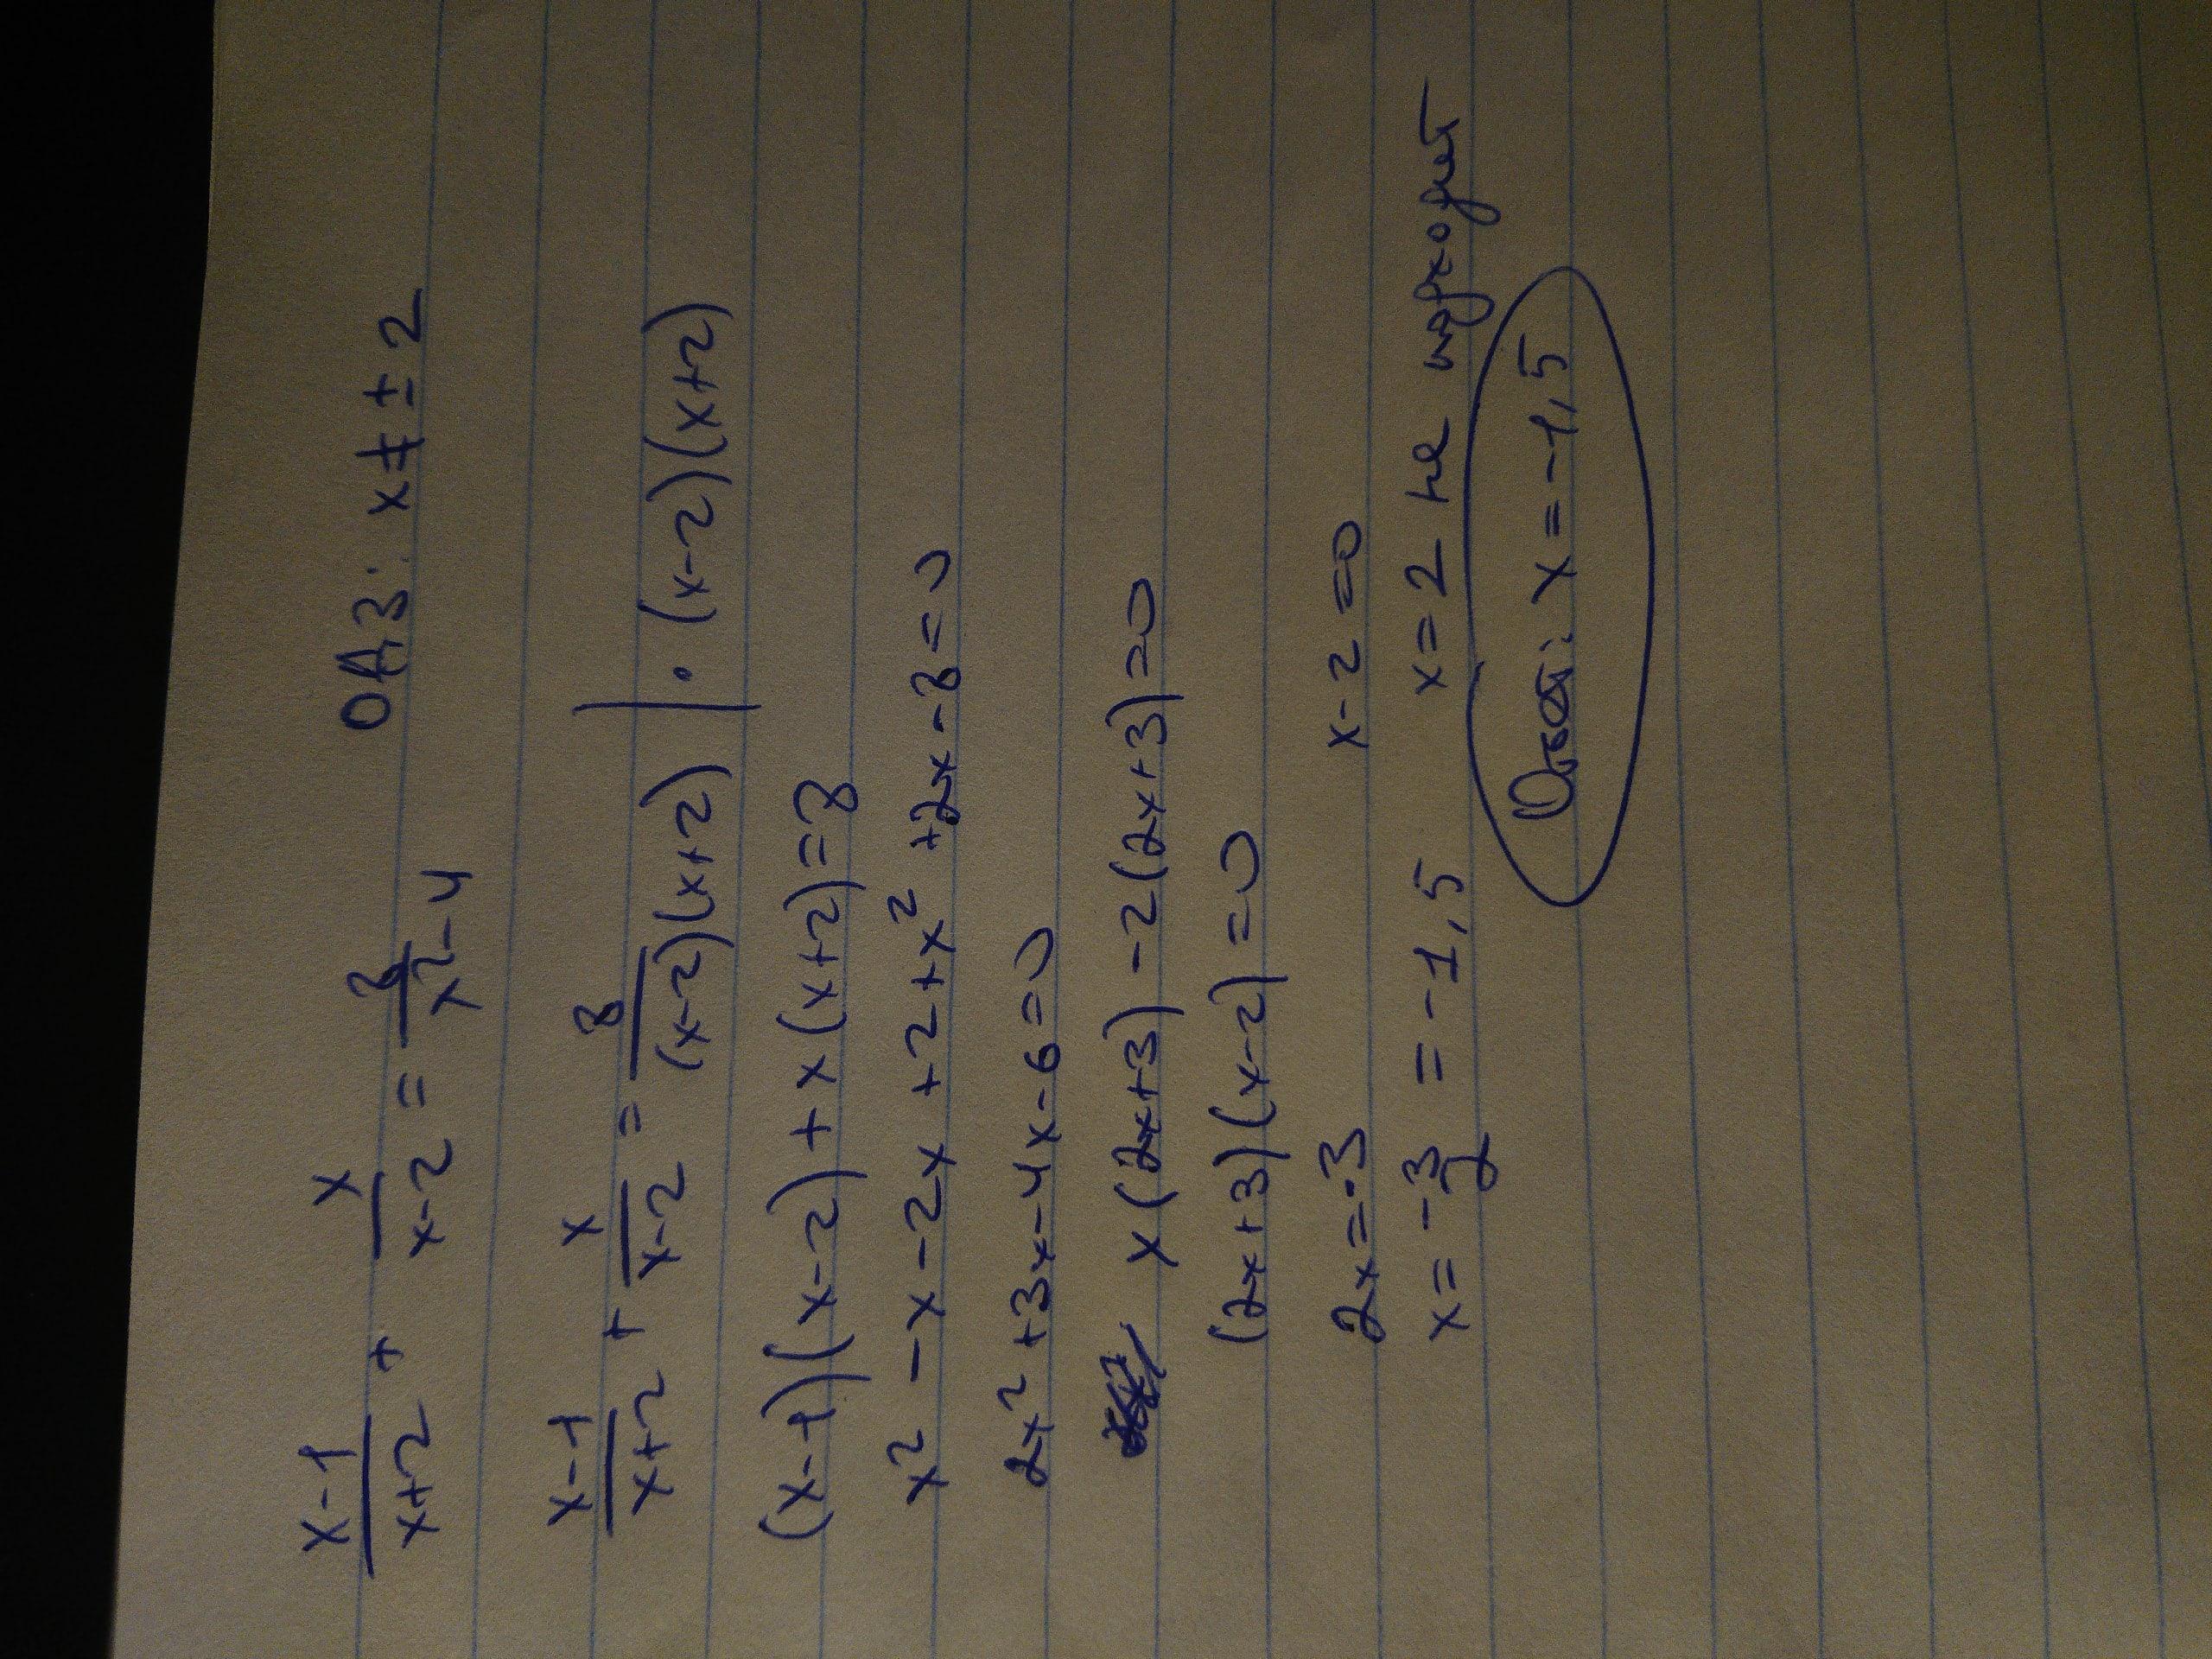 (x-1)/(x+2) + x/(x-2) = 8/(x²-4) ОДЗ: x ≠ ± 2
(x-1)/(x+2) + x/(x-2) = 8/((x-2)(x+2)) | · (x-2)(x+2)
(x-1)(x-2) + x(x+2) = 8
x² - x - 2x + 2 + x² + 2x - 8 = 0
2x² + 3x - 4x - 6 = 0
x(2x+3) - 2(2x+3) = 0
(2x+3)(x-2) = 0
2x = -3 x-2 = 0
x = -3/2 = -1,5 x = 2 не подходит
Ответ: x = -1,5